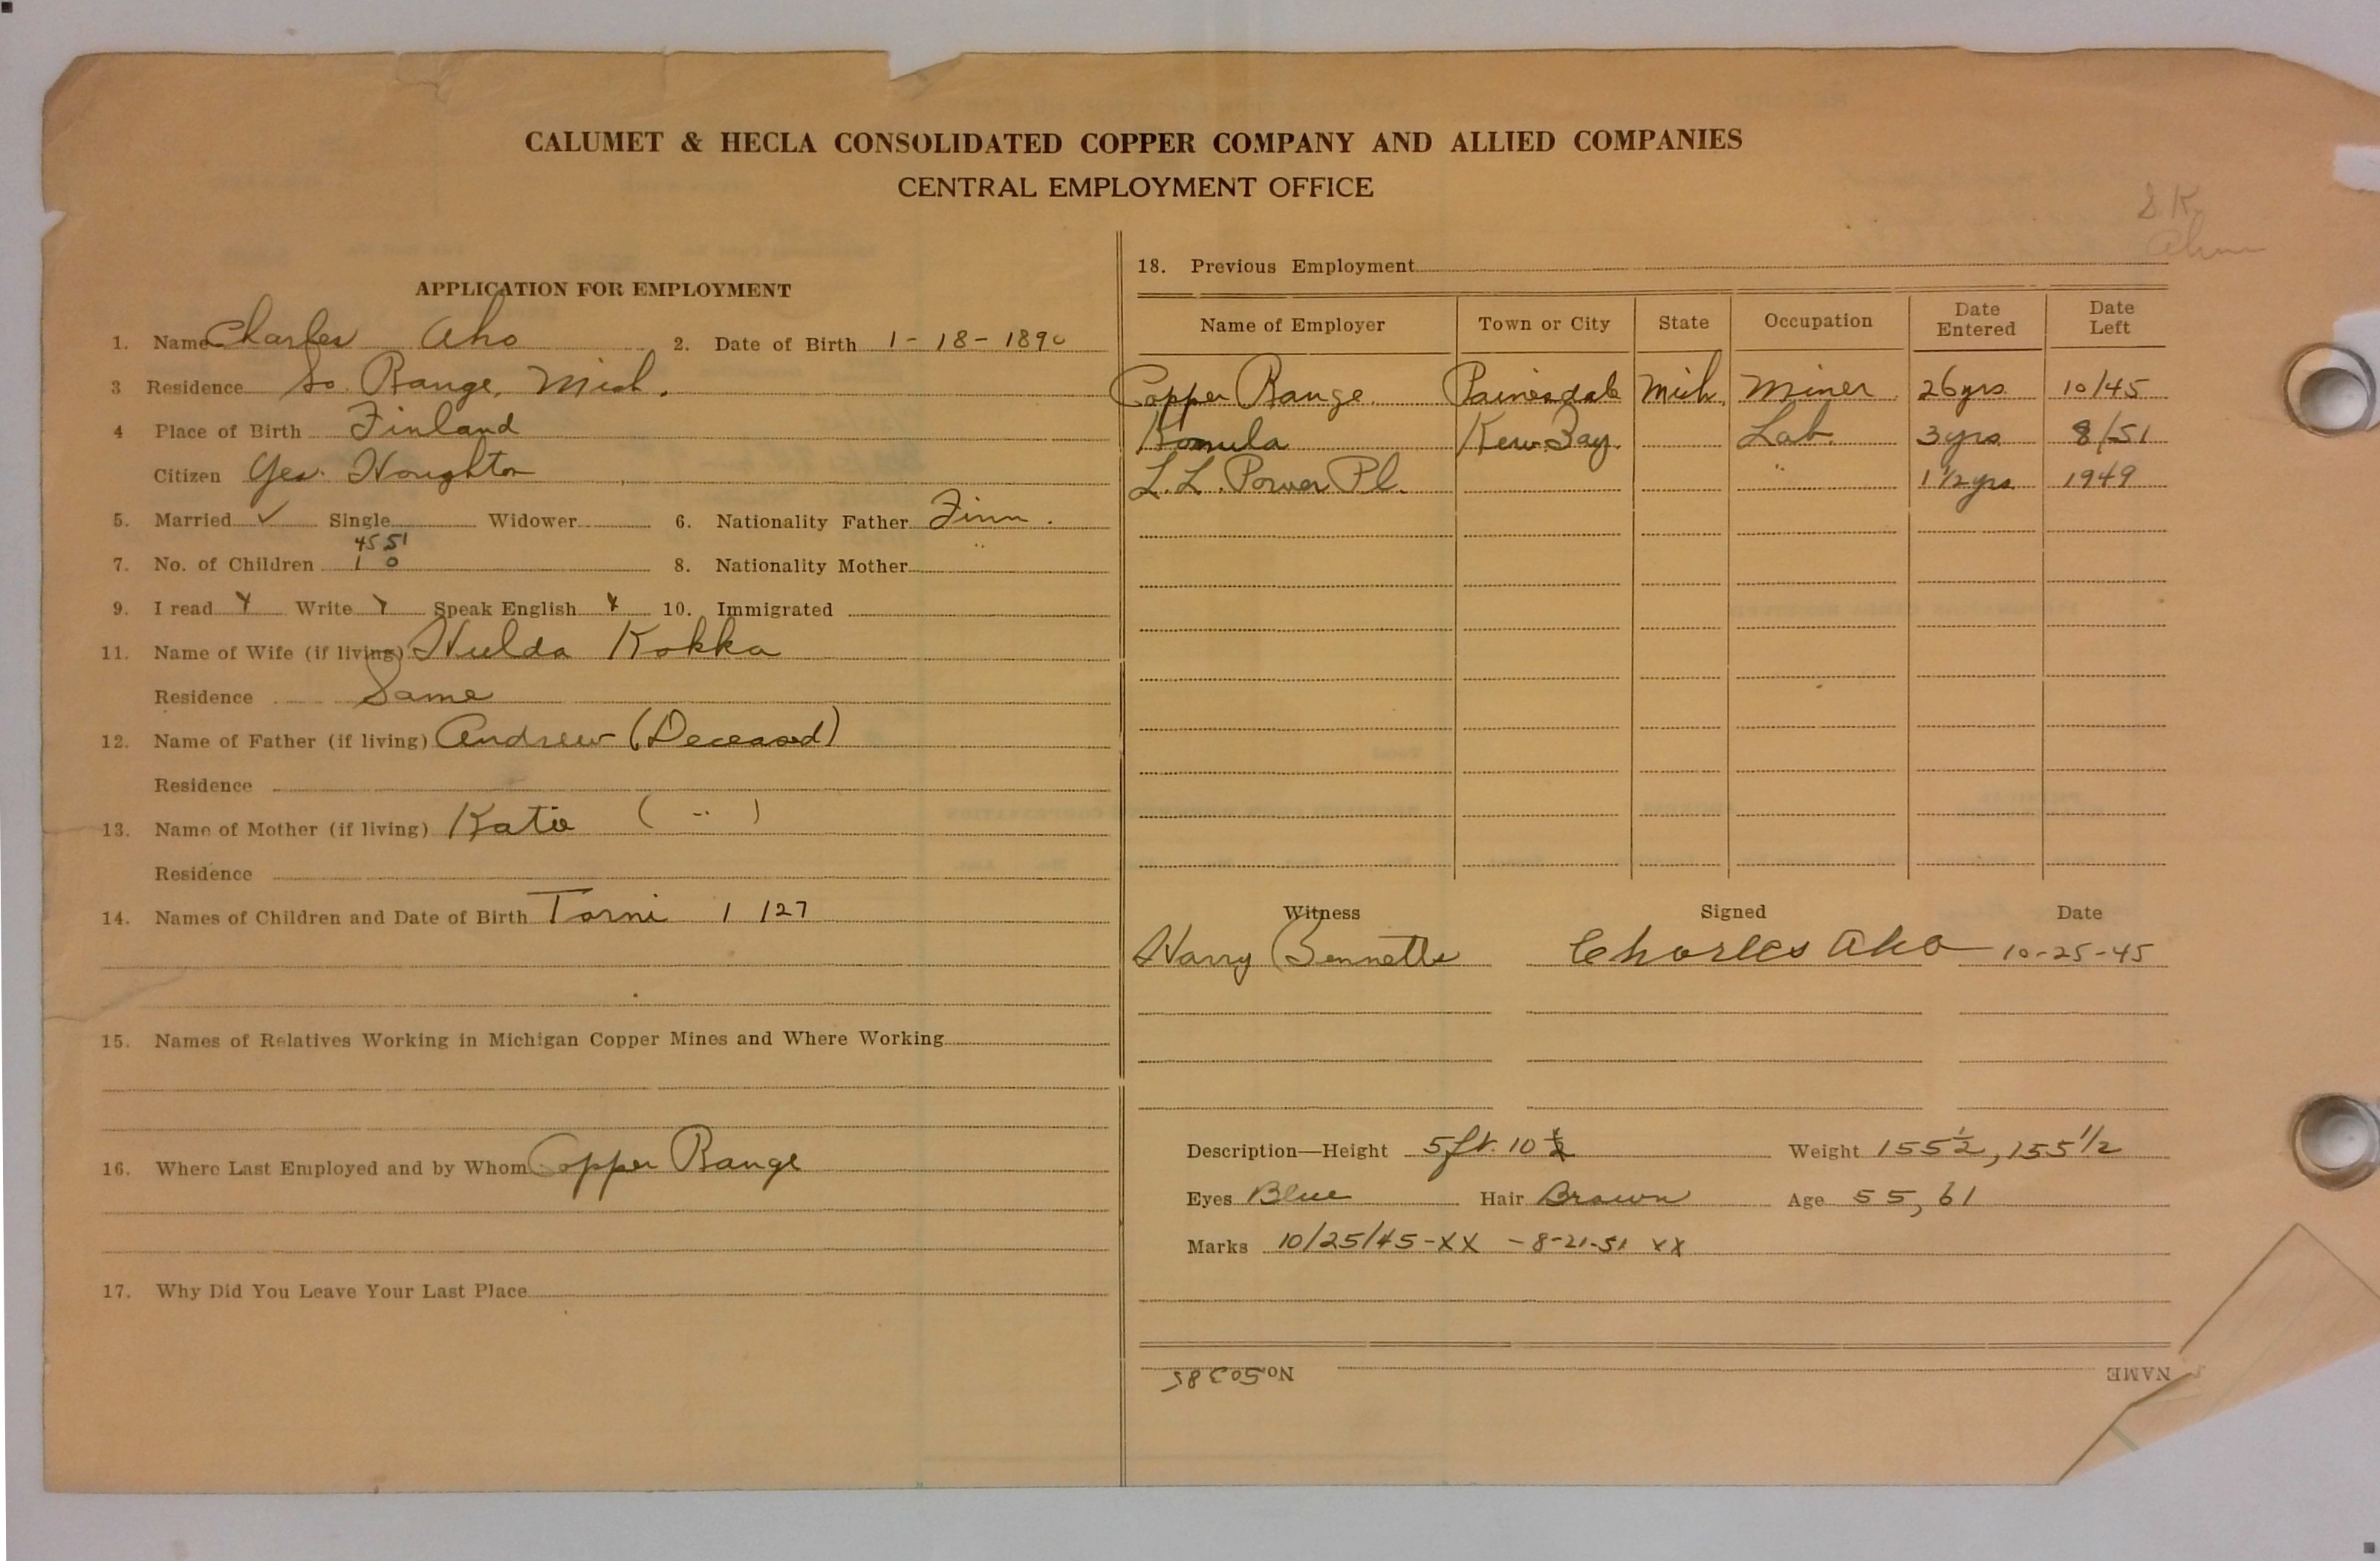 CALUMET & HECLA CONSOLIDATED COPPER COMPANY AND ALLIED COMPANIES
CENTRAL EMPLOYMENT OFFICE
APPLICATION FOR EMPLOYMENT
1. Name Charles Aho 2. Date of Birth 1-18-1890
3 Residence So. Range, Mich.
4 Place of Birth Finland
Citizen Yes. Houghton
5. Married ✓ Single Widower 6. Nationality Father Finn.
45 51
7. No. of Children 1 0 8. Nationality Mother "
9. I read Y Write Y Speak English Y 10. Immigrated
11. Name of Wife (if living) Hulda Kokka
Residence Same
12. Name of Father (if living) Andrew (Deceased)
Residence
13. Name of Mother (if living) Katie ( " )
Residence
14. Names of Children and Date of Birth Tarni 1 /27
15. Names of Relatives Working in Michigan Copper Mines and Where Working
16. Where Last Employed and by Whom Copper Range
17. Why Did You Leave Your Last Place
SK
18. Previous Employment
Name of Employer Town or City State Occupation Date Entered Date Left
Copper Range. Painesdale Mich. Miner 26 yrs. 10/45
Komula Kew. Bay. Lab. 3 yrs. 8/51
L.L. Power Pl. " 1 1/2 yrs 1949
Witness Signed Date
Harry Bennetts Charles Aho 10-25-45
Description—Height 5 ft. 10 1/2 Weight 155 1/2, 155 1/2
Eyes Blue Hair Brown Age 55, 61
Marks 10/25/45-XX -8-21-51 XX
NAME No 50385